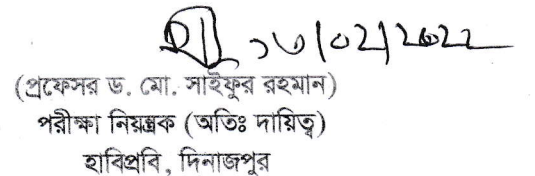 ১৩/০২/২০২২
(প্রফেসর ড. মো. সাইফুর রহমান)
পরীক্ষা নিয়ন্ত্রক (অতিঃ দায়িত্ব)
হাবিপ্রবি, দিনাজপুর